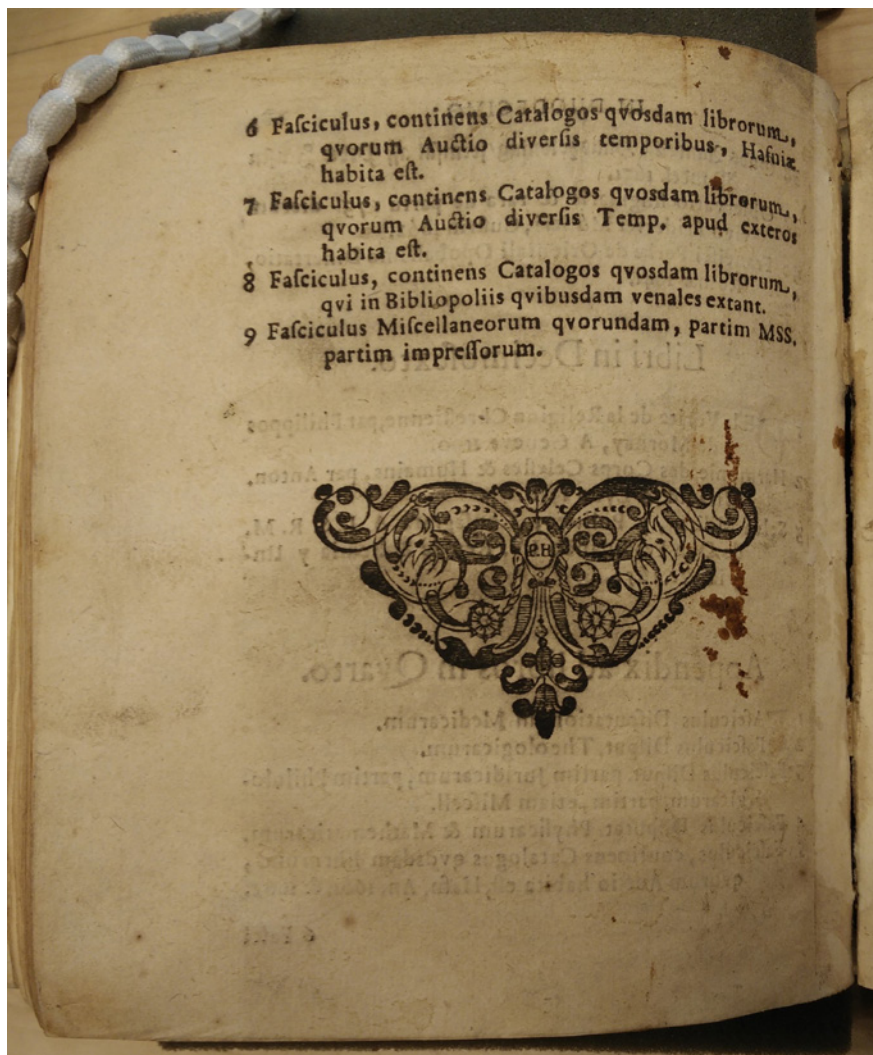 6 Faſciculus, continens Catalogos qvosdam librorum,
qvorum Auctio diverſis temporibus, Hafniæ
habita eſt.
7 Faſciculus, continens Catalogos qvosdam librorum,
qvorum Auctio diverſis Temp. apud exteros
habita eſt.
8 Faſciculus, continens Catalogos qvosdam librorum,
qvi in Bibliopoliis qvibusdam venales extant.
9 Faſciculus Miſcellaneorum qvorundam, partim MSS.
partim impreſſorum.